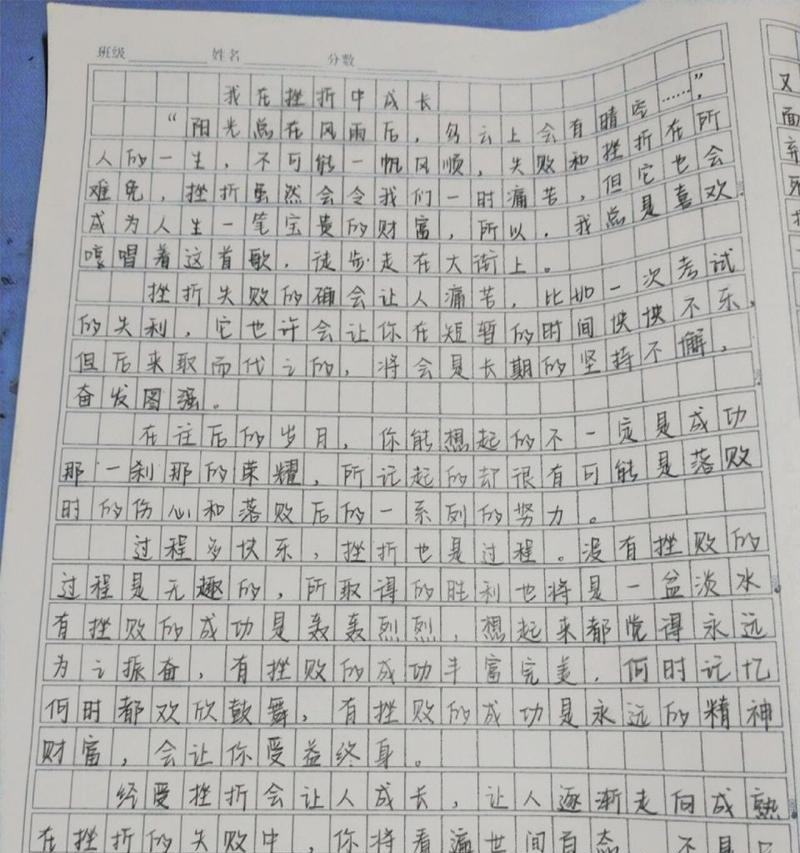 班级 姓名 分数
我在挫折中成长
“阳光总在风雨后，乌云上会有晴空……”，
人的一生，不可能一帆风顺，失败和挫折在所
难免，挫折虽然会令我们一时痛苦，但它也会
成为人生一笔宝贵的财富，所以，我总是喜欢
哼唱着这首歌，徒步走在大街上。
挫折失败的确会让人痛苦，比如一次考试
的失利，它也许会让你在短暂的时间怏怏不乐，
但后来取而代之的，将会是长期的坚持不懈，
奋发图强。
在往后的岁月，你能想起的不一定是成功
那一刹那的荣耀，所记起的却很有可能是落败
时的伤心和落败后的一系列的努力。
过程多快乐，挫折也是过程。没有挫败的
过程是无趣的，所取得的胜利也将是一盆淡水
有挫败的成功是轰轰烈烈，想起来都觉得永远
为之振奋，有挫败的成功丰富完美，何时记忆
何时都欢欣鼓舞，有挫败的成功是永远的精神
财富，会让你受益终身。
经受挫折会让人成长，让人逐渐走向成熟
在挫折的失败中，你将看遍世间百态
又
面
弃